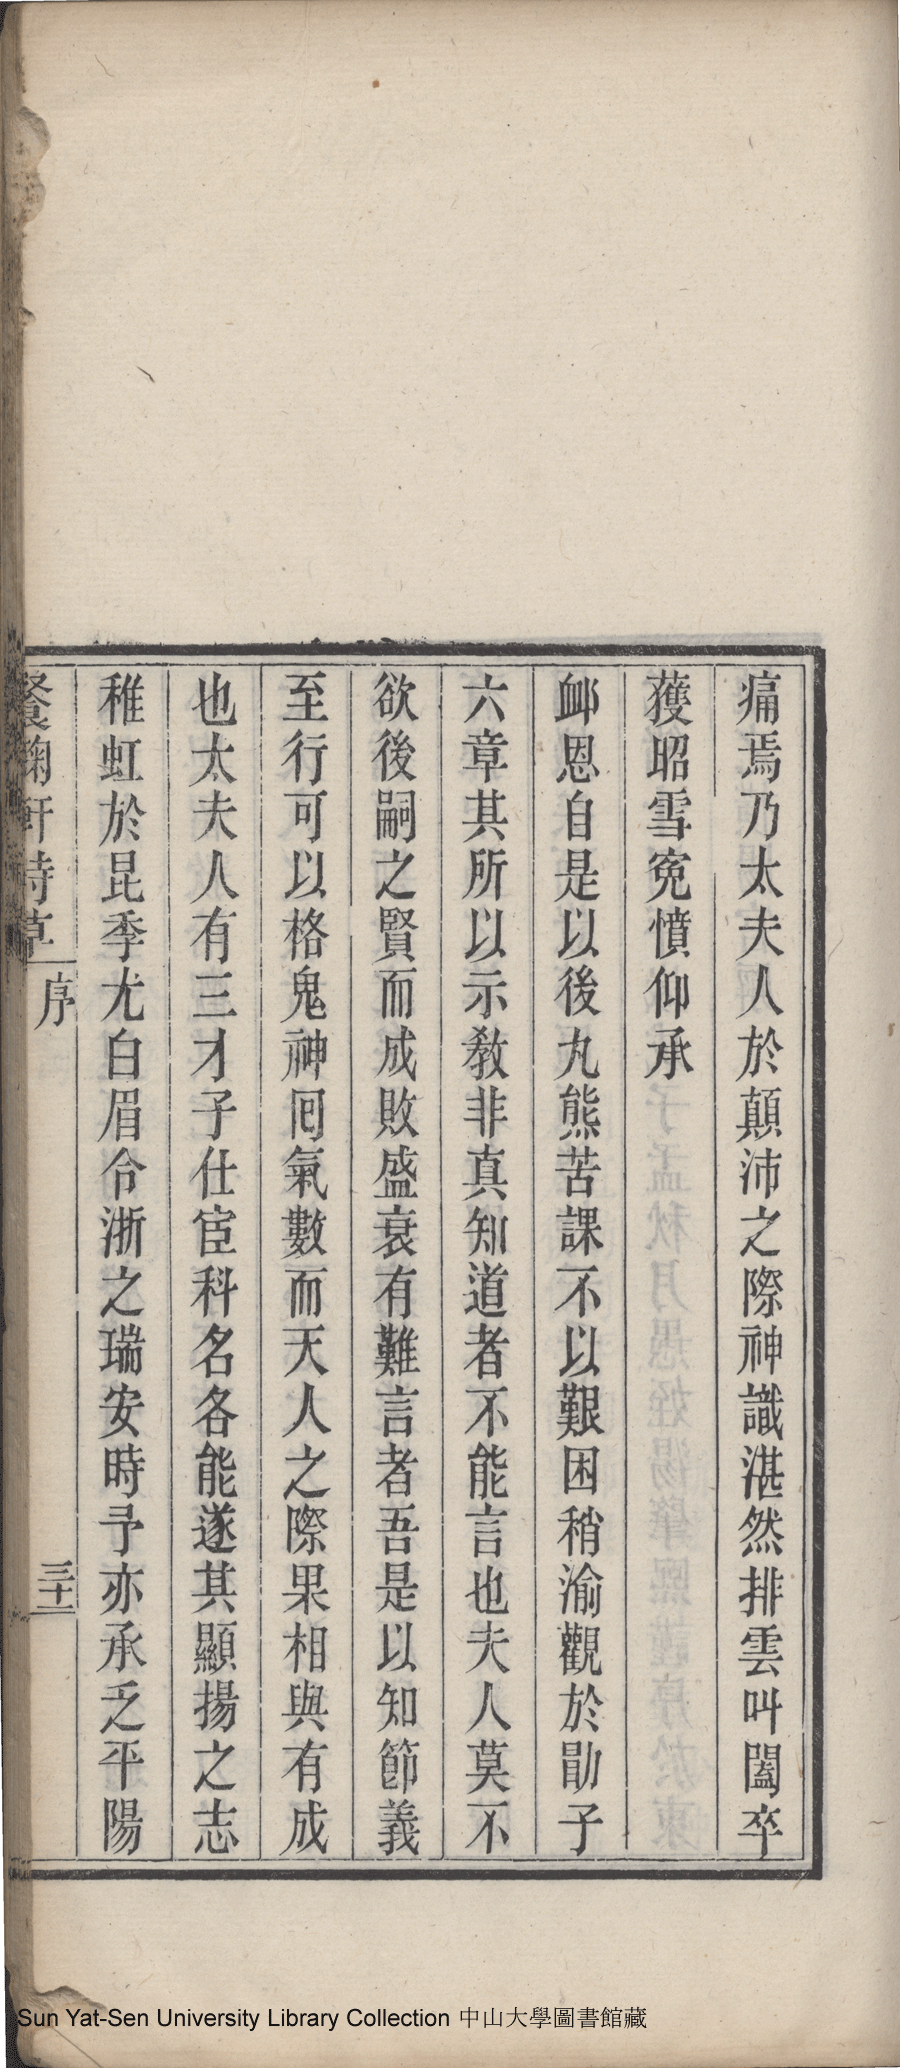 痛焉乃太夫人於顛沛之際神識湛然排雲叫闔卒
獲昭雪寃憤仰承
䘏恩自是以後丸熊苦課不以艱困稍渝觀於勖子
六章其所以示敎非真知道者不能言也夫人莫不
欲後嗣之賢而成敗盛衰有難言者吾是以知節義
至行可以格鬼神囘氣數而天人之際果相與有成
也太夫人有三才子仕宦科名各能遂其顯揚之志
稚虹於昆季尤白眉令浙之瑞安時予亦承乏平陽
餐菊軒詩草
序
三十一
Sun Yat-Sen University Library Collection 中山大學圖書館藏